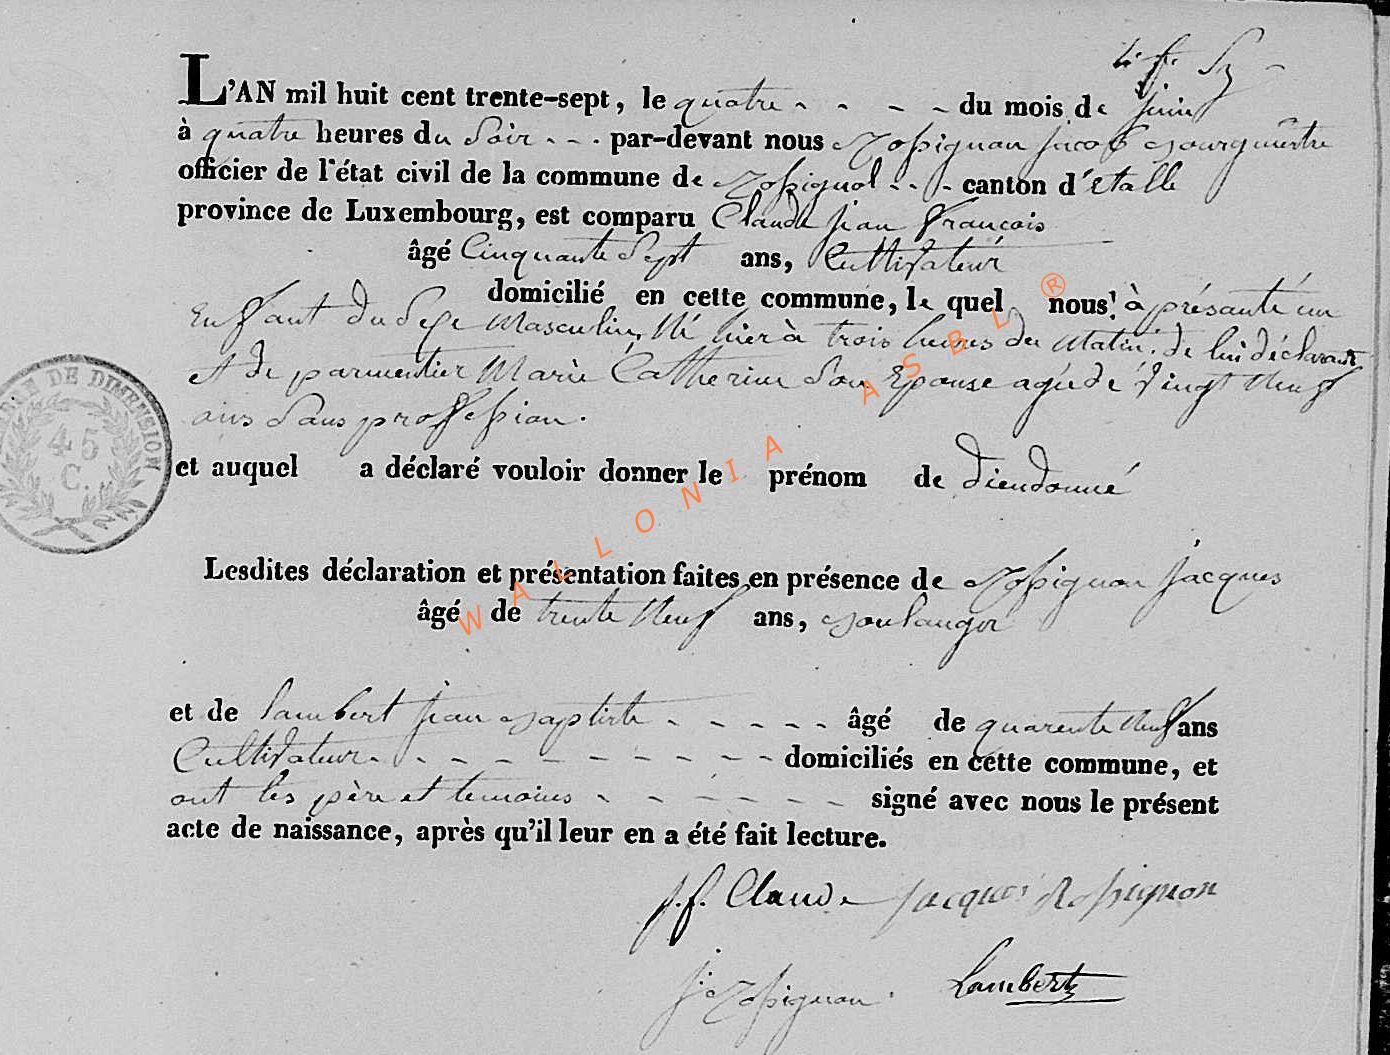 L'AN mil huit cent trente-sept, le quatre - - - - du mois de juin
à quatre heures du Soir - - . par-devant nous Rossignon jacob Bourguestre
officier de l'état civil de la commune de Rossignol - - - canton d'étalle
province de Luxembourg, est comparu Claude jean François
âgé Cinquante Sept ans, Cultivateur
domicilié en cette commune, le quel nous à présanté un
Enfant du Sexe Masculin, Né hier à trois heures du Matin. de lui déclarant
et de parmentier Marie Catherine Son Epouse agée de Vingt Neuf
ans Sans profession.
et auquel a déclaré vouloir donner le prénom de dieudonné
Lesdites déclaration et présentation faites en présence de Rossignon jacques
âgé de trente Neuf ans, Boulanger
et de lambert jean Baptiste - - - - - âgé de quarente Neuf ans
Cultivateur - - - - - - - - - - domiciliés en cette commune, et
ont les père et temoins - - - - - - signé avec nous le présent
acte de naissance, après qu'il leur en a été fait lecture.
j. f. Claude jacques Rossignon
j Rossignon. Lambert
DE DIMENSION
45
C.
WALLONIA ASBL ®